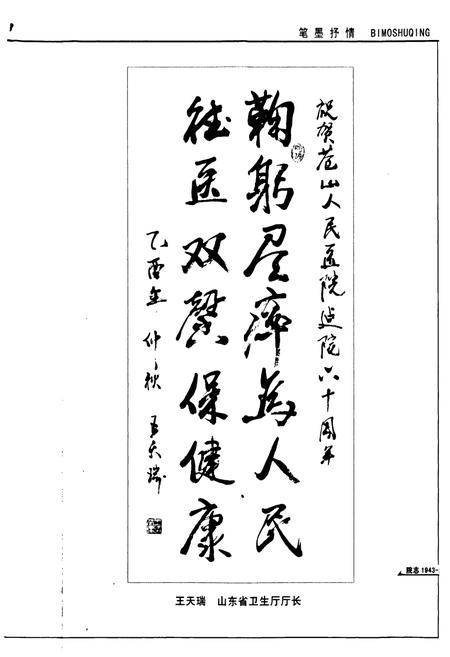 笔墨抒情 BIMOSHUQING
祝贺苍山人民医院建院六十周年
鞠躬尽瘁为人民
德医双馨保健康
乙酉年仲秋 王天瑞
院志1943-
王天瑞 山东省卫生厅厅长